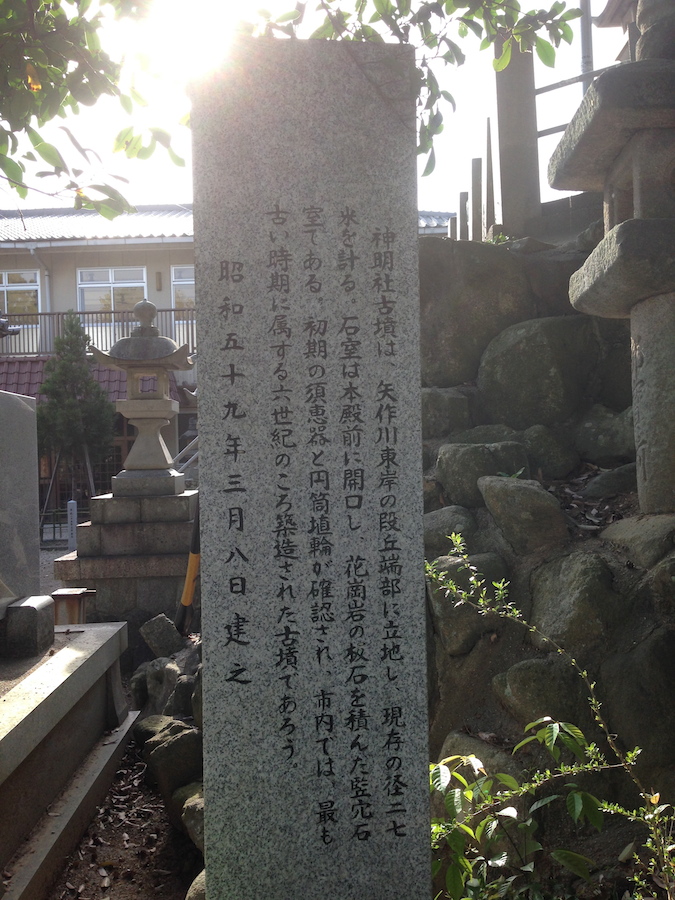 神明社古墳は、矢作川東岸の段丘端部に立地し、現存の径二七
米を計る。石室は本殿前に開口し、花崗岩の板石を積んだ竪穴石
室である。初期の須恵器と円筒埴輪が確認され、市内では、最も
古い時期に属する六世紀のころ築造された古墳であろう。
昭和五十九年三月八日建之